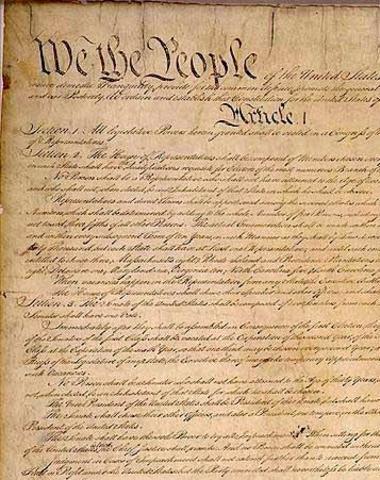 We the People of the United States
insure domestic Tranquility, provide for the common defence, promote the general
and our Posterity, do ordain and establish this Constitution for the United States of
Article. I
Section. 1. All legislative Powers herein granted shall be vested in a Congress of
of Representatives.
Section. 2. The House of Representatives shall be composed of Members chosen every
in each State shall have the Qualifications requisite for Electors of the most numerous Branch of
No Person shall be a Representative who shall not have attained to the Age of
and who shall not, when elected, be an Inhabitant of that State in which he shall be chosen.
Representatives and direct Taxes shall be apportioned among the several States which
Numbers, which shall be determined by adding to the whole Number of free Persons, including
not taxed, three fifths of all other Persons. The actual Enumeration shall be made
and within every subsequent Term of ten Years, in such Manner as they shall by Law
thirty Thousand, but each State shall have at Least one Representative; and until such
entitled to chuse three, Massachusetts eight, Rhode Island and Providence Plantations
eight, Delaware one, Maryland six, Virginia ten, North Carolina five, South Carolina
When vacancies happen in the Representation from any State, the Executive Authority
The House of Representatives shall chuse their Speaker and other Officers;
Section. 3. The Senate of the United States shall be composed of two Senators from each
Senator shall have one Vote.
Immediately after they shall be assembled in Consequence of the first Election, they
of the Senators of the first Class shall be vacated at the Expiration of the second Year, of the
Class at the Expiration of the sixth Year, so that one third may be chosen every second Year;
Recess of the Legislature of any State, the Executive thereof may make temporary Appointments
such Vacancies.
No Person shall be a Senator who shall not have attained to the Age of thirty Years,
not, when elected, be an Inhabitant of that State for which he shall be chosen.
The Vice President of the United States shall be President of the Senate, but shall have
The Senate shall chuse their other Officers, and also a President pro tempore, in the
President of the United States.
The Senate shall have the sole Power to try all Impeachments. When sitting for that
of the United States, the Chief Justice shall preside: And no Person shall be
Judgment in Cases of Impeachment shall not extend further than to removal from